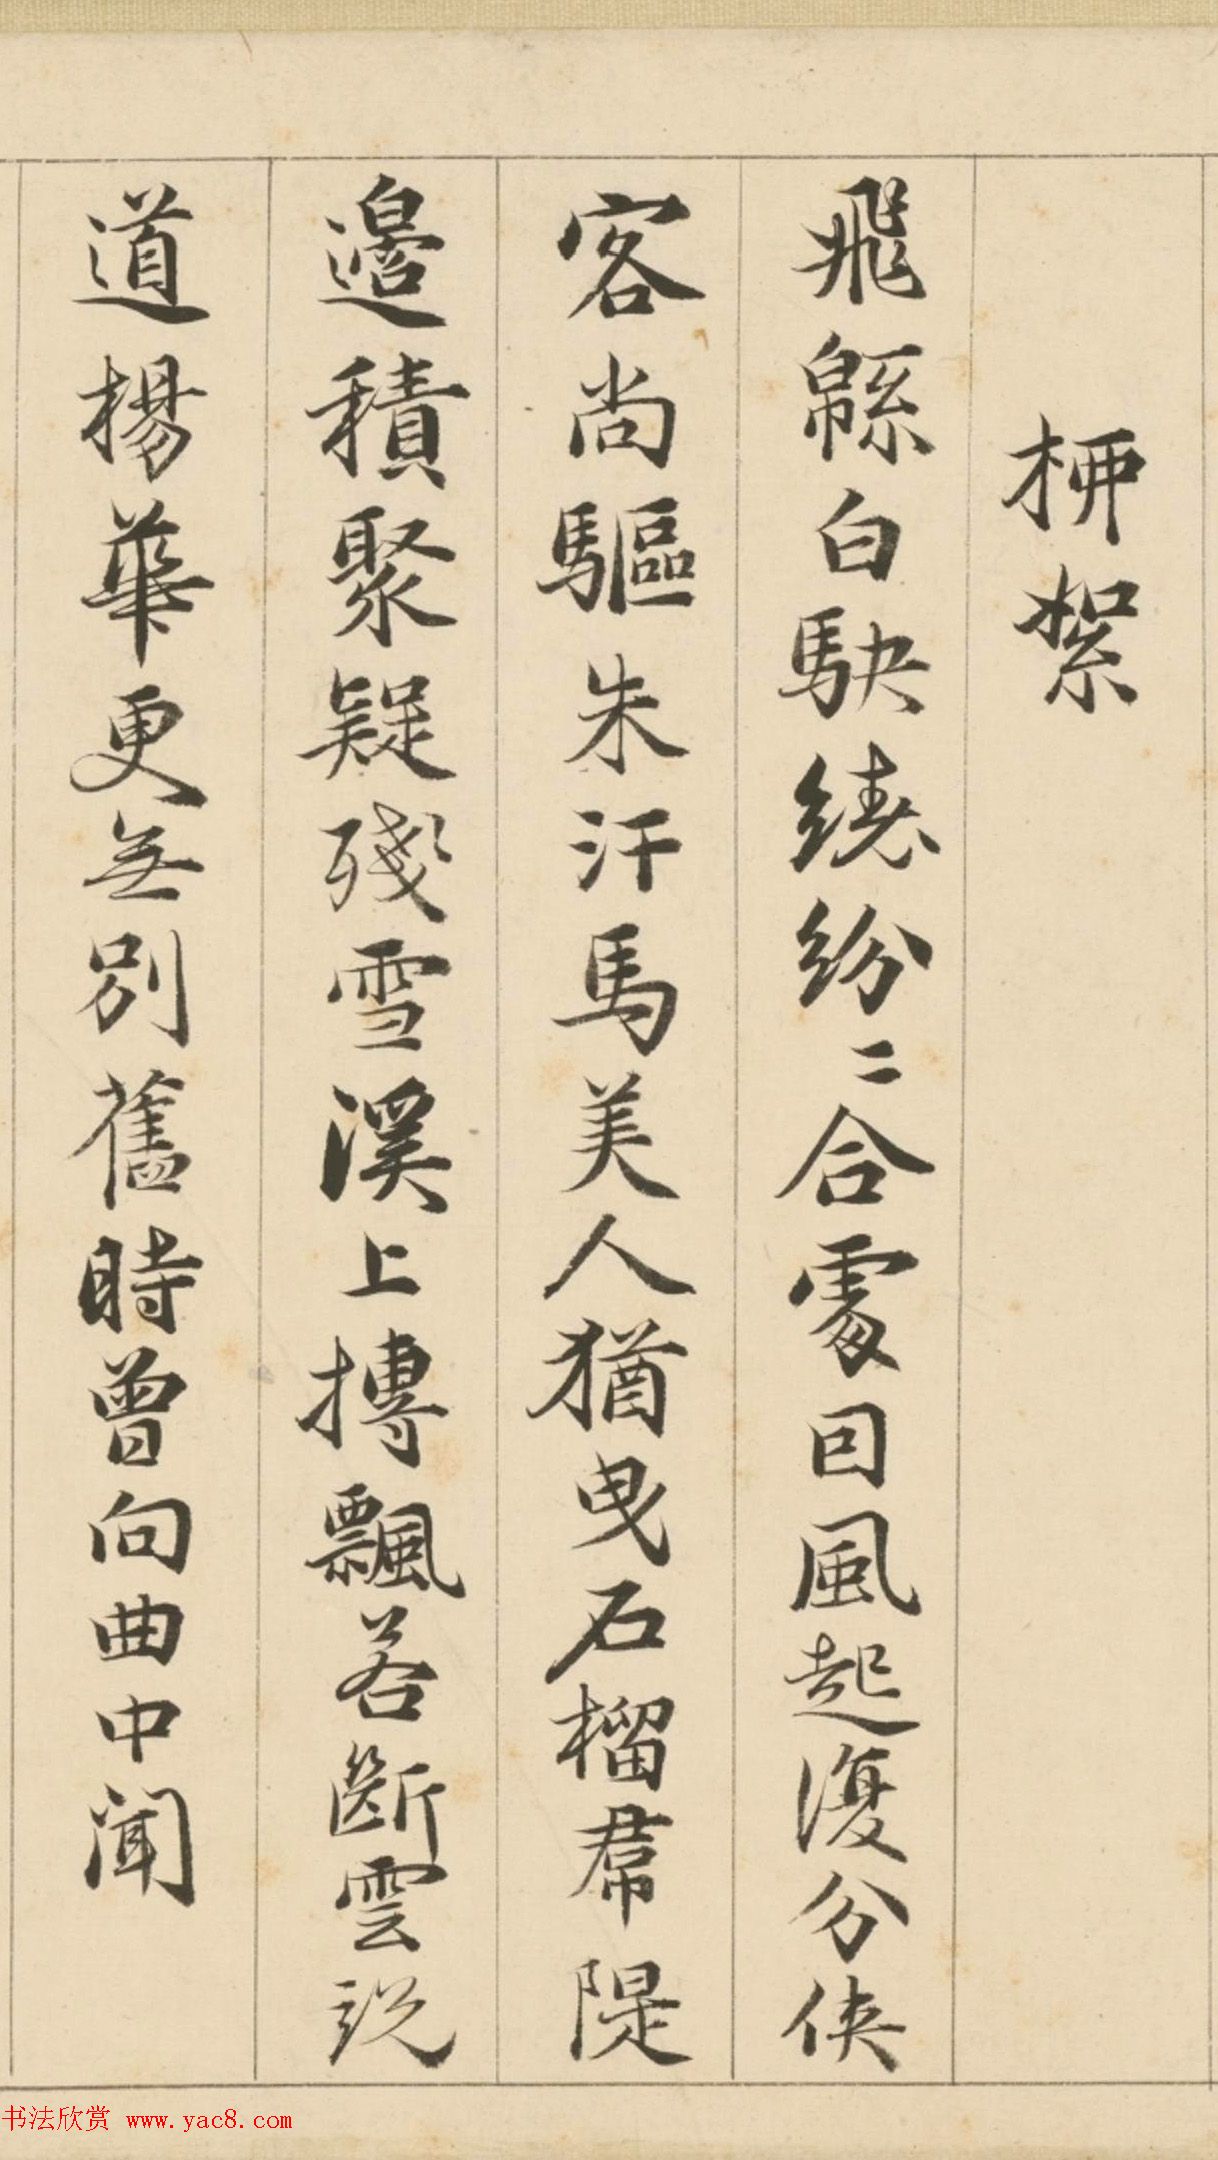 柳絮
飛緜白駃繞紛〻合處回風起復分俠
客尚驅朱汗馬美人猶曳石榴帬隄
邊積聚疑殘雪溪上摶飄若斷雲説
道楊華更無別舊時曾向曲中聞
书法欣赏 www.yac8.com